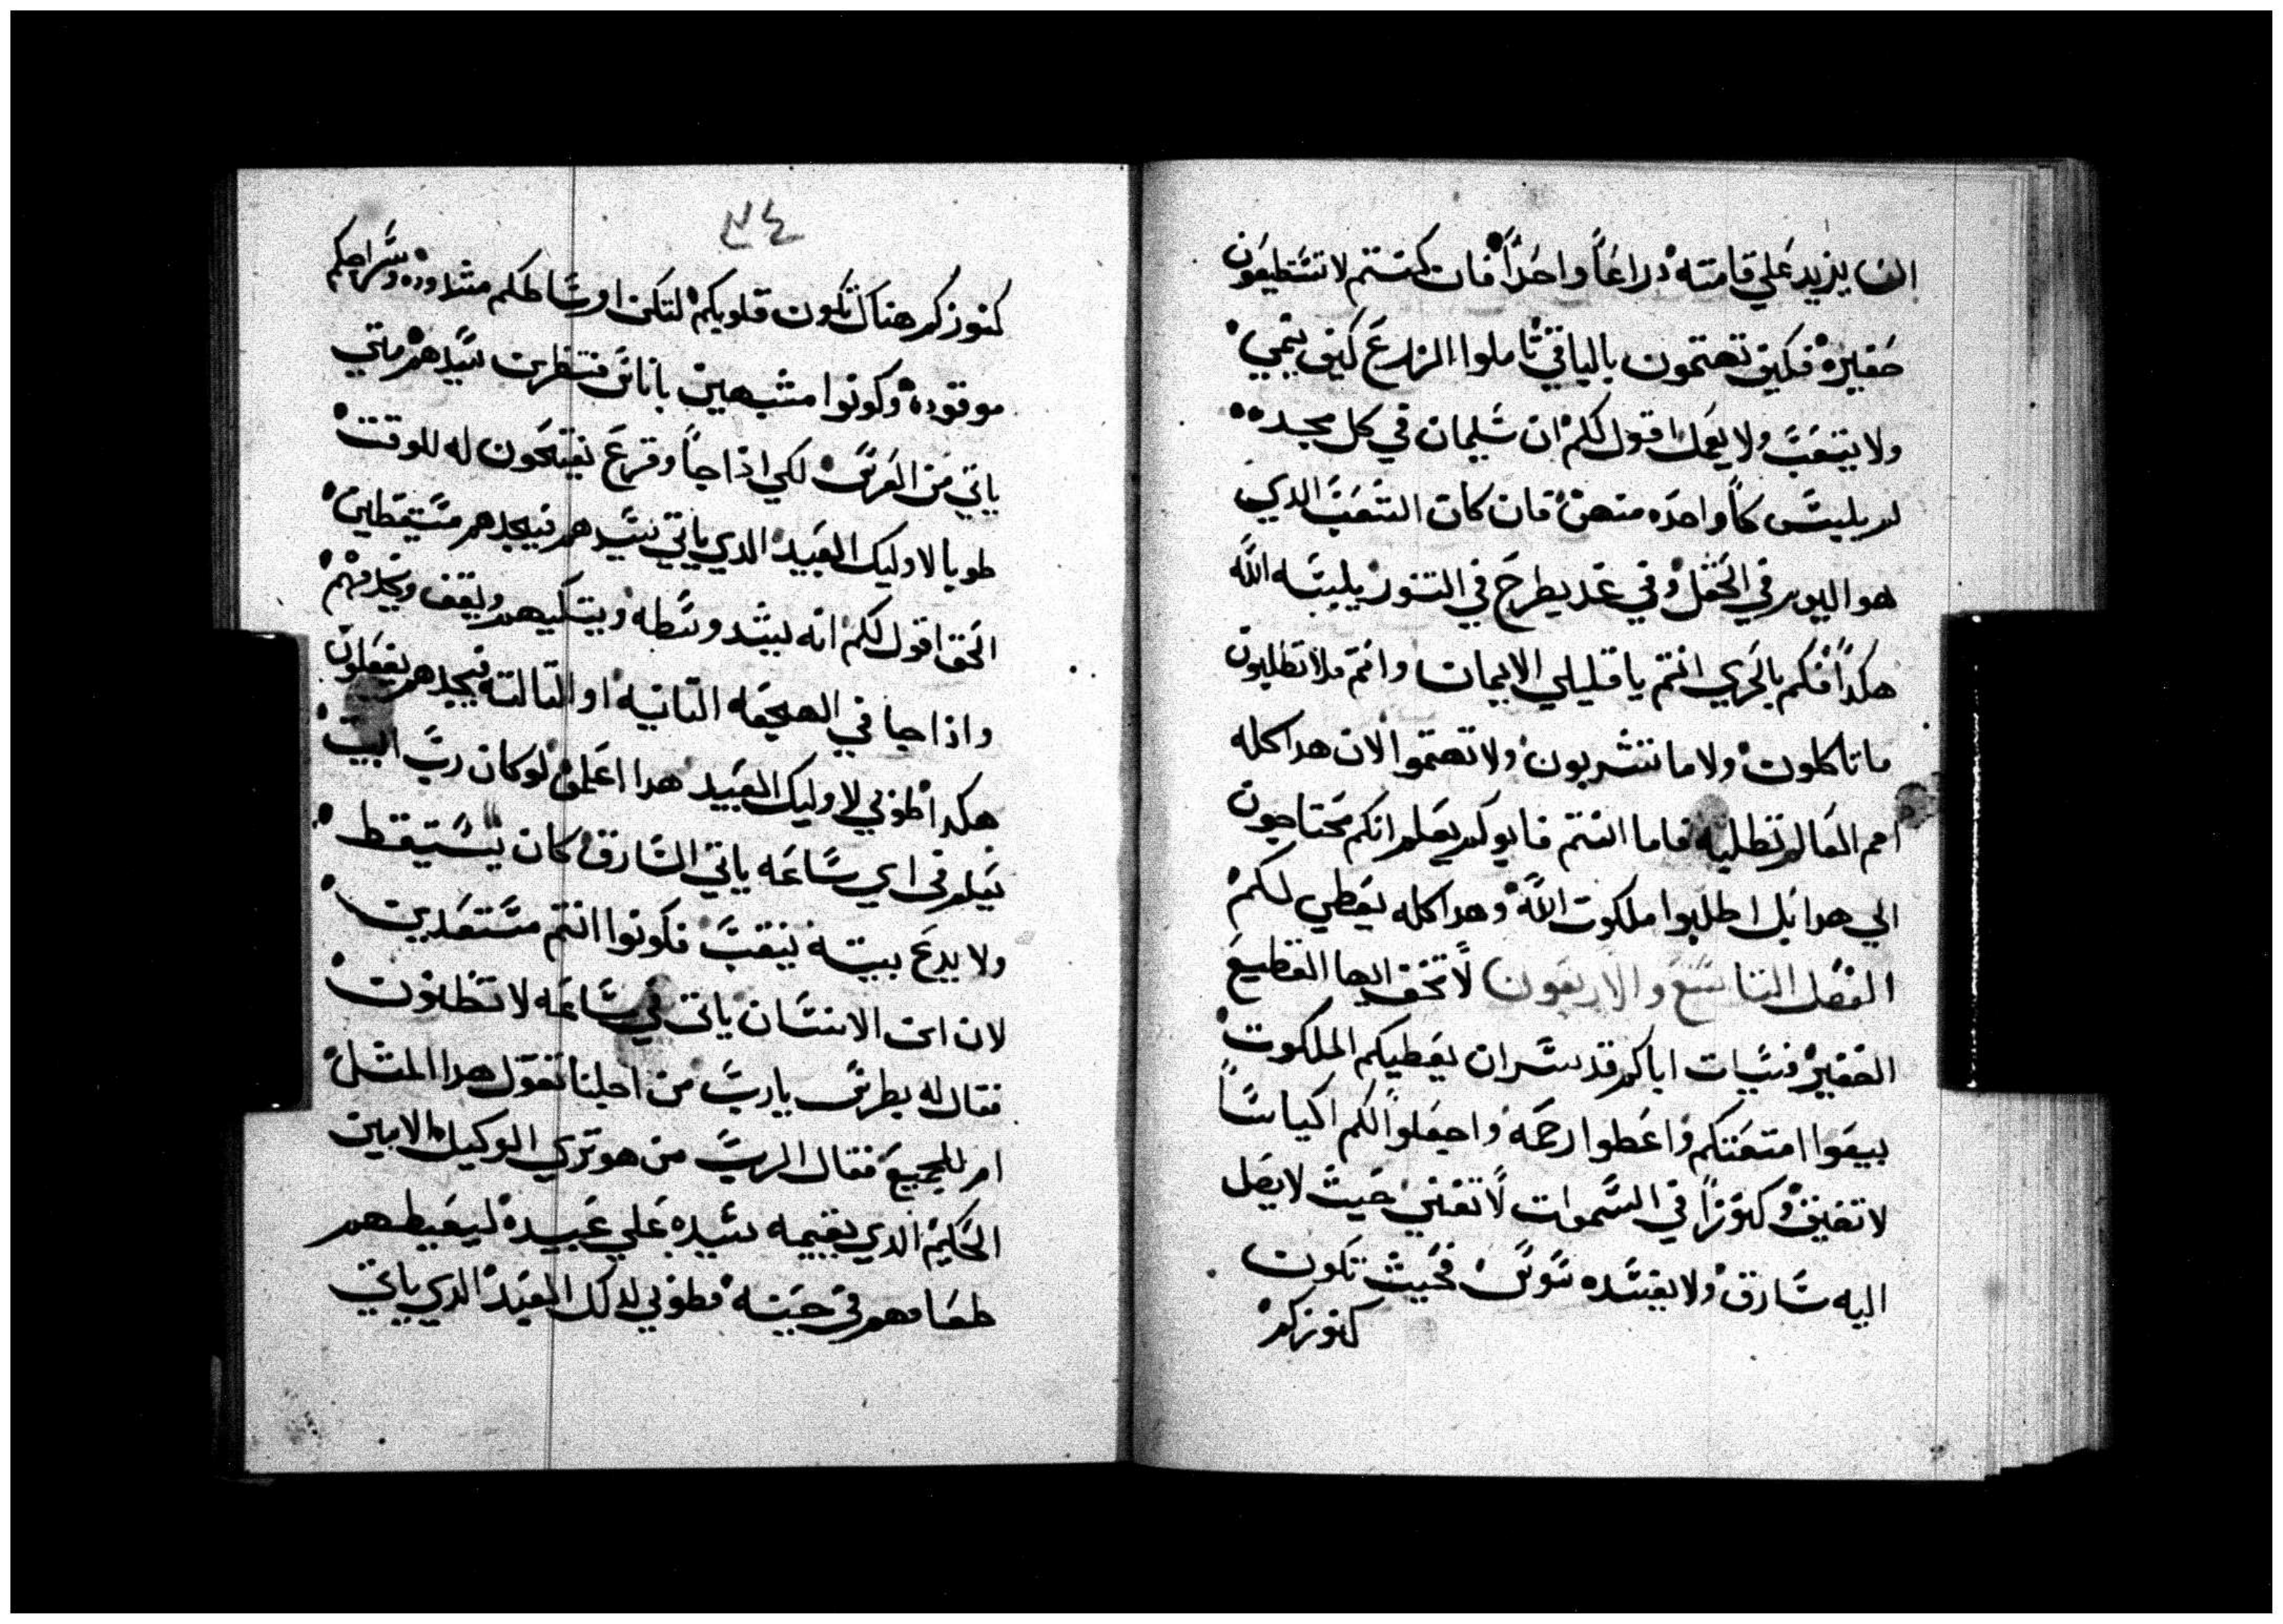 ان يزيد علي قامته دراعاً واحداً فان كنتم لا تستطيعون
حقيره فكيف تهتمون بالباقي تاملوا الزرع كيف ينمي
ولا يتعب ولا يعمل اقول لكم ان سليمان في كل مجده
لم يلبس كاواحده منهن فان كان العشب الدي
هو اليوم في الحقل وفي غد يطرح في التنور يلبسه الله
هكدا فكم بالحري انتم يا قليلي الايمان وانتم فلا تطلبون
ما تاكلون ولا ما تشربون ولا تهتموا لان هدا كله
امم العالم تطلبه فاما انتم فابوكم يعلم انكم محتاجون
الي هدا بل اطلبوا ملكوت الله وهدا كله يعطي لكم
الفصل التاسع والاربعون لا تخف ايها القطيع
الحقير فسيات اباكم قد سر ان يعطيكم الملكوت
بيعوا امتعتكم واعطوا رحمه واجعلوا لكم اكياساً
لا تعتق وكنوزاً في السموات لا تفني حيث لا يصل
اليه سارق ولا يفسده سوس فحيث تكون
كنوزكم
٣٤
كنوزكم هناك تكون قلوبكم لتكن اوساطكم مشدوده وسراجكم
موقوده وكونوا متشبهين باناس منتظرين سيدهم متي
ياتي من العرس لكي اذا جا وقرع يفتحون له للوقت
طوبا لاوليك العبيد الدي ياتي سيدهم فيجدهم مستيقظين
الحق اقول لكم انه يشد وسطه ويتكيهم ويقف ويخدمهم
واذا جا في الهجعه التانيه او التالته فيجدهم يفعلون
هكدا طوبي لاوليك العبيد هدا اعلموا لو كان رب البيت
يعلم في اي ساعه ياتي السارق كان يستيقظ
ولا يدع بيته ينقب فكونوا انتم مستعدين
لان ابن الانسان ياتي في ساعه لا تظنون
فقال له بطرس يارب من اجلنا تقول هدا المثل
ام للجميع فقال الرب من هو تري الوكيل الامين
الحكيم الدي يقيمه سيده علي عبيده ليعطيهم
طعامهم في حينه فطوبي لدلك العبد الدي ياتي